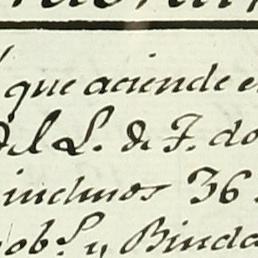 que aciende e
del L. de F. do
inclusos 36
ob.s y Binda